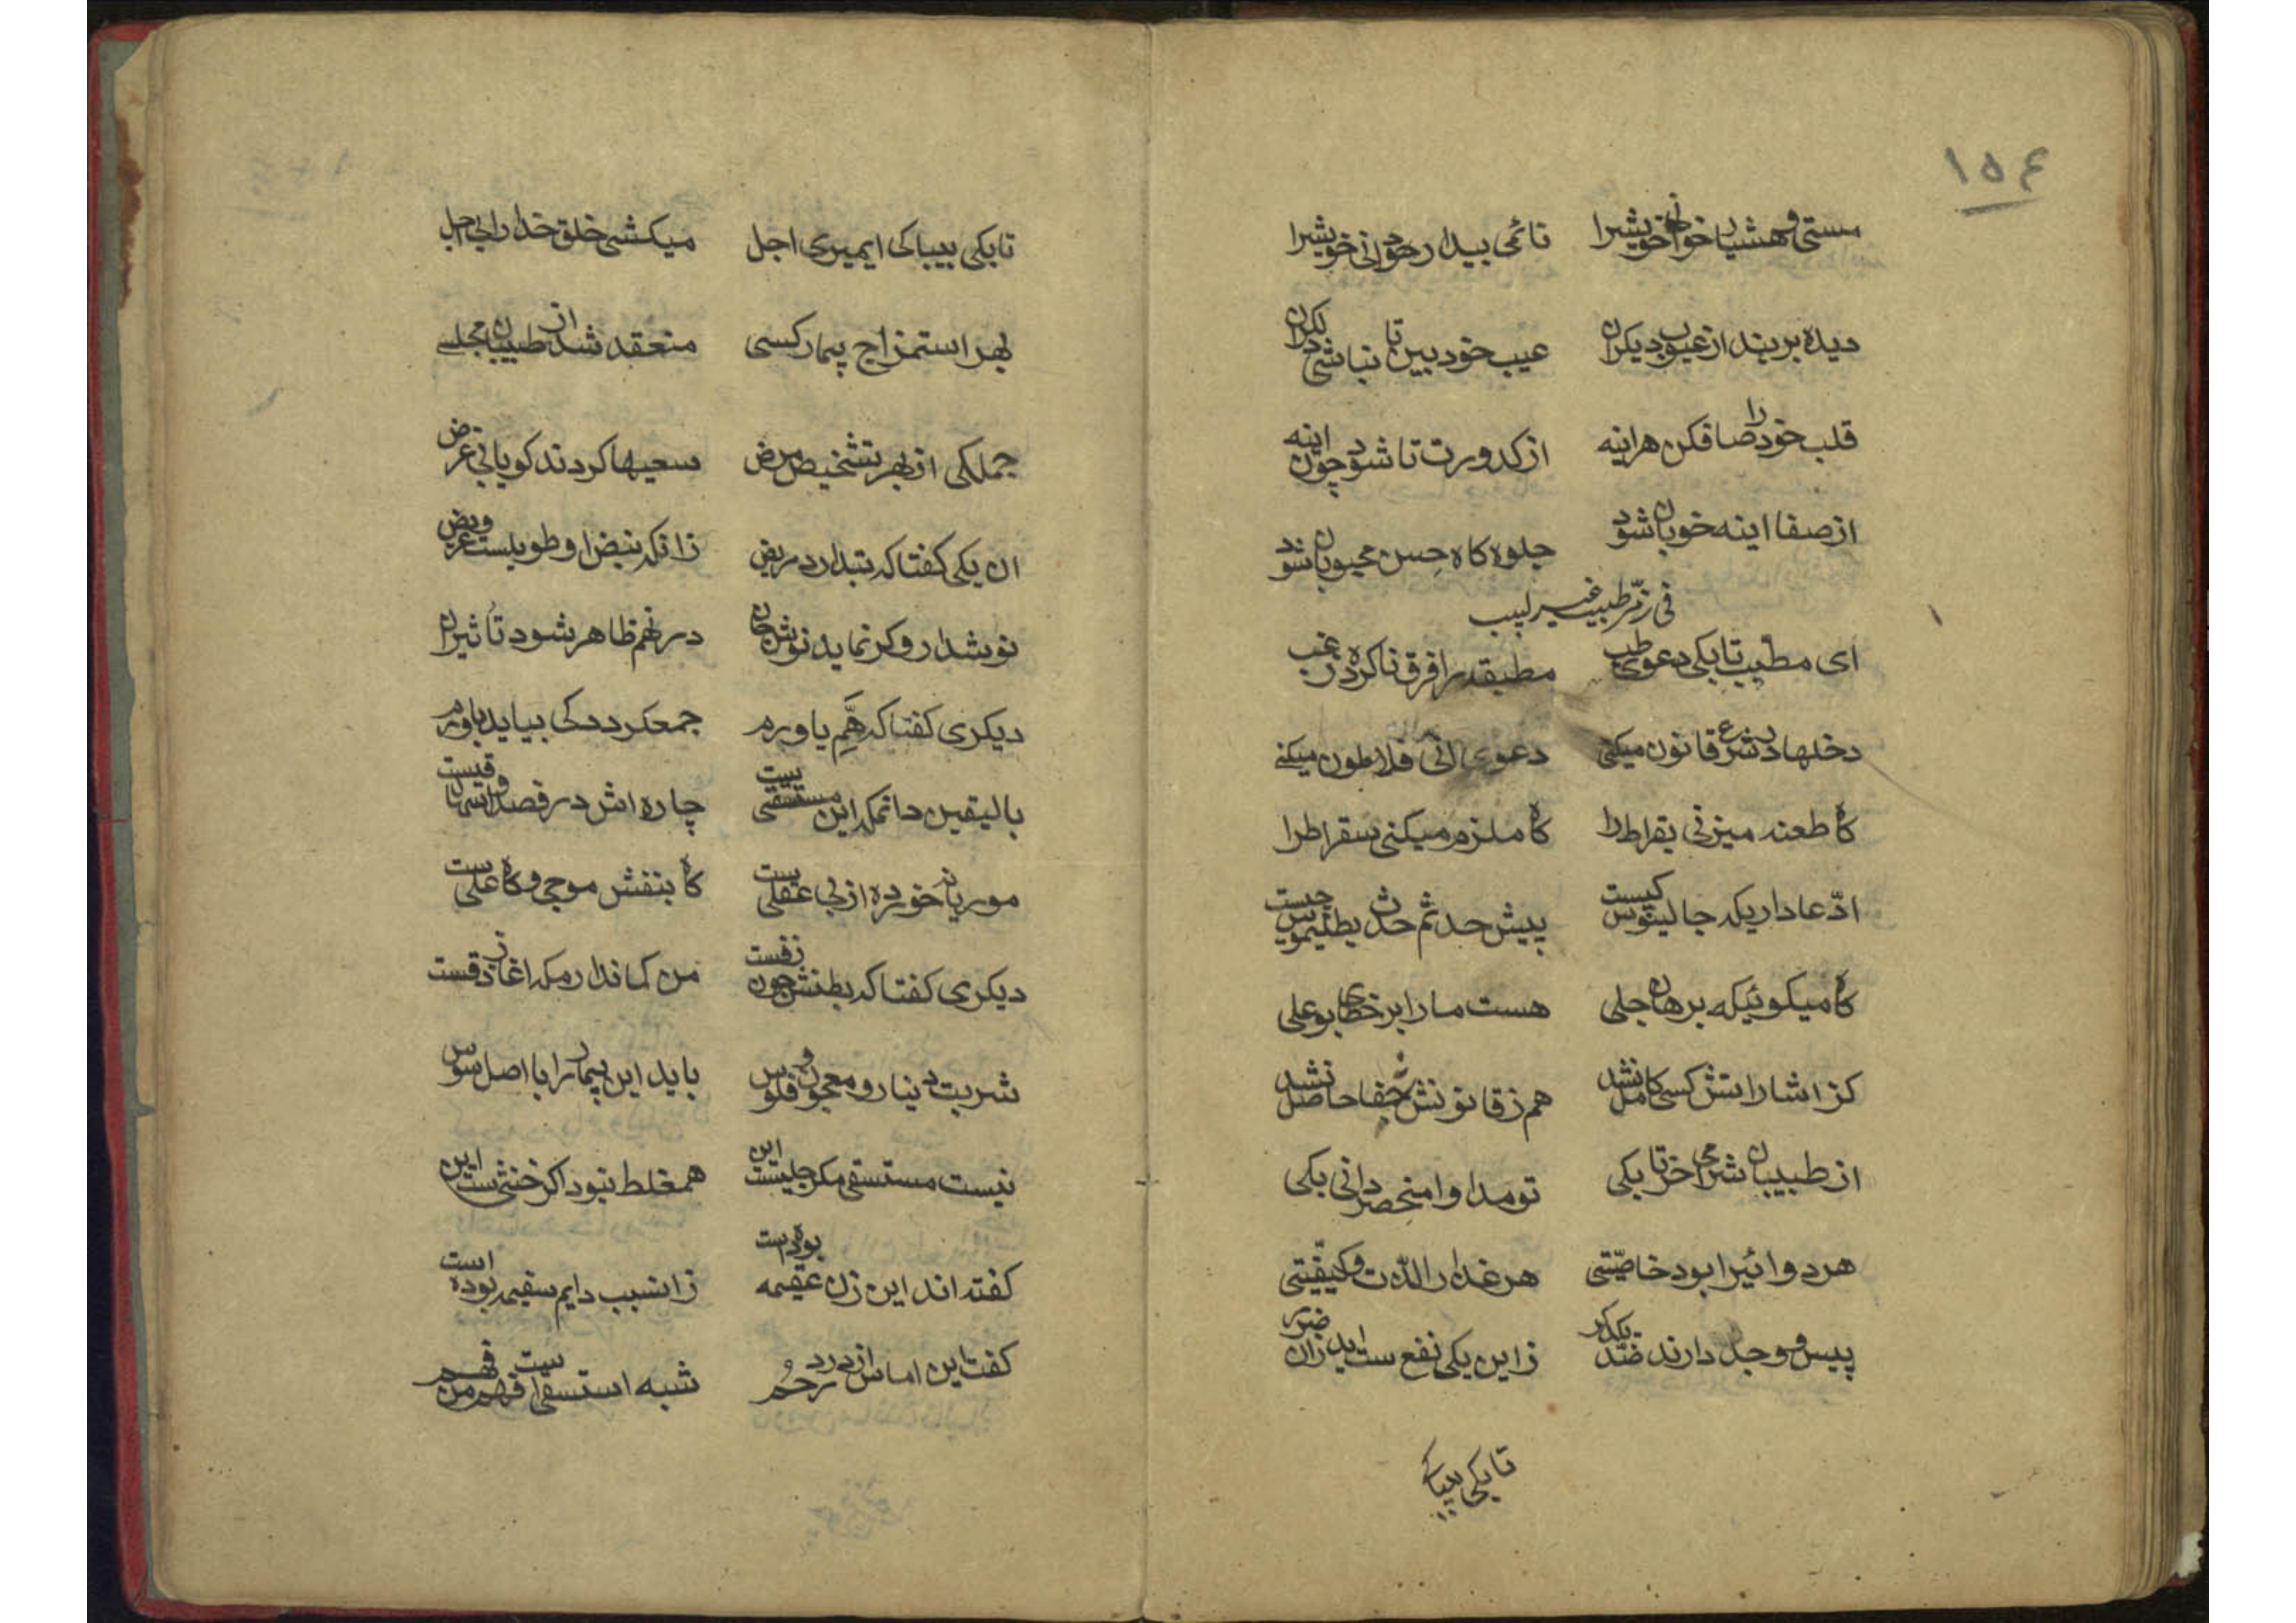 ۱۵۴
مستی و هشیار خوانی خویشرا نائمی بیدار خوانی خویشرا
دیده بربند از عیوب دیکران عیب خود بین تا نباشی دلکران
قلب خود را صاف کن هراینه از کدورت تا شود چون اینه
از صفا اینه خوبان شود جلوه کاه حسن محبوبان شود
فی ذم طبیب غیر لبیب
ای مطبب تا بکی دعوی طب مطبقه را فرق نا کرده ز غب
دخلها در شرع قانون میکنی دعوی انی فلاطون میکنی
کاه طعنه میزنی بقراط را کاه ملزم میکنی سقراطرا
ادّعا داریکه جالینوس کیست پیش حدثم حدث بطلیموس چیست
کاه میکوئیکه برهان جلی هست ما را بر خطای بوعلی
کز اشاراتش کسی کامل نشد هم ز قانونش شفا حاصل نشد
از طبیبان شرمی اخر تا بکی تو مداوا منحصر دانی بکی
هر دوائیرا بود خاصّیتی هر غذا را لذّت و کیفّیتی
پیس و وجل دارند ضدّ یکدکر زاین یکی نفع ست اید زان ضرر
تا بکی بیباکی
تا بکی بیباکی ایمیری اجل میکشی خلق خدا را بی اجل
بهر استمزاج بیمار کسی منعقد شد از طبیبان مجلسی
جملکی از بهر تشخیص مرض سعیها کردند کویا بی غرض
ان یکی کفتا که تبدارد مریض زانکه نبض او طویلست و عریض
نوشدارو کر نماید نوش جان در نهم ظاهر شود تأثیر ان
دیکری کفتا که همّ یاورم جمعکردد کی بیاید باورم
بالیقین دانمکه این مستسقی یست چاره اش در فصد و اسهال و قیست
موریانه خورده از بی عقلی یست کاه بنفش موجی و کاه عسلی ست
دیکری کفتا که بطنش چون زفست من کمانذارمکه اغاز دقست
شربت دینار و معجون و فلوس باید این بیمار را با اصل سوس
نیست مستسقی مکر حبلیست این همغلط نبود اکر خنثی ست این
کفته اند این زن عقیمه بوده است زانسبب دایم سقیمه بوده است
کفت این اماس از درد رحم شبه استسقاست فهم من فهم